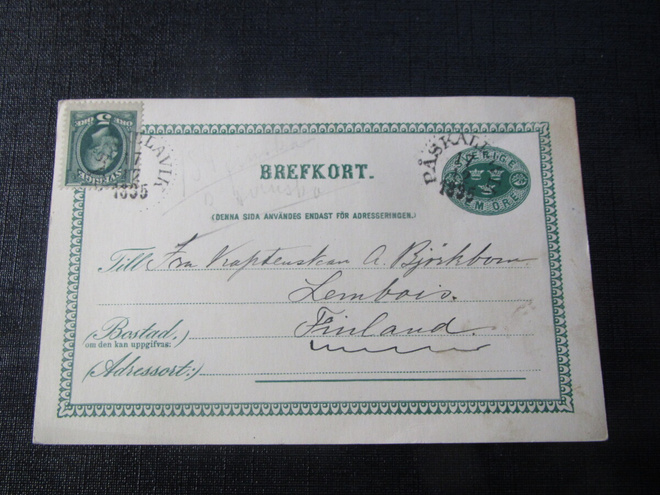 BREFKORT.
(DENNA SIDA ANVÄNDES ENDAST FÖR ADRESSERINGEN.)
Till Fru Kaptenskan A. Björkbom
Lembois.
(Bostad.) Finland.
om den kan uppgifvas:
(Adressort:)
LLAVIK
1895
PÅSKALL
1895
SVERIGE
FEM ÖRE
5